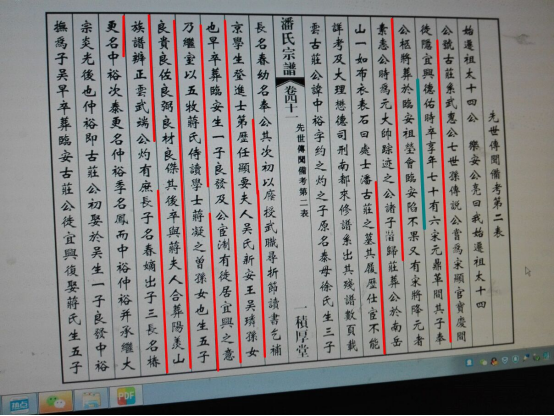 先世傳聞備考第二表
始遷祖太十四公 樂安公亮曰我始遷祖太十四
公號古莊系武惠公七世孫傳說公嘗為宋顯官寶慶間
徙隱宜興德佑時卒享年七十有六宋元鼎革間其子奉
公柩將葬於臨安祖塋會臨安陷不果又有宋將降元者
素恚公時為元大帥踪迹之公諸子潛歸莊葬公於南岳
山一如布衣表石曰處士潘古莊之墓其履歷仕宦不能
詳考及大理懋德司刑南都來修譜系出其殘譜數頁載
雲古莊公諱中裕字約之灼之子原名泰母徐氏生三子
潘氏宗譜 卷四十一 先世傳聞備考第二表 一 積厚堂
長名春幼名奉公其次初以廕授武職尋折節讀書乞補
京學生登進士第歷任顯要夫人吳氏新安王吳璘孫女
也早卒葬臨安生一子良發及公宦淛有徙居宜興之意
乃繼室以五牧蔣氏侍讀學士蔣凝之曾孫女也生五子
良貴良佐良弼良材良傑其後卒與蔣夫人合葬陽羨山
族譜辨正雲武端公灼有庶長子名春嫡出子三長名椿
更名中裕次泰更名仲裕季名鳳而中裕仲裕并承繼大
宗炎光後也仲裕即古莊公初娶於吳生一子良發中裕
撫為子吳早卒葬臨安古莊公徙宜興復娶蔣氏生五子
PDF